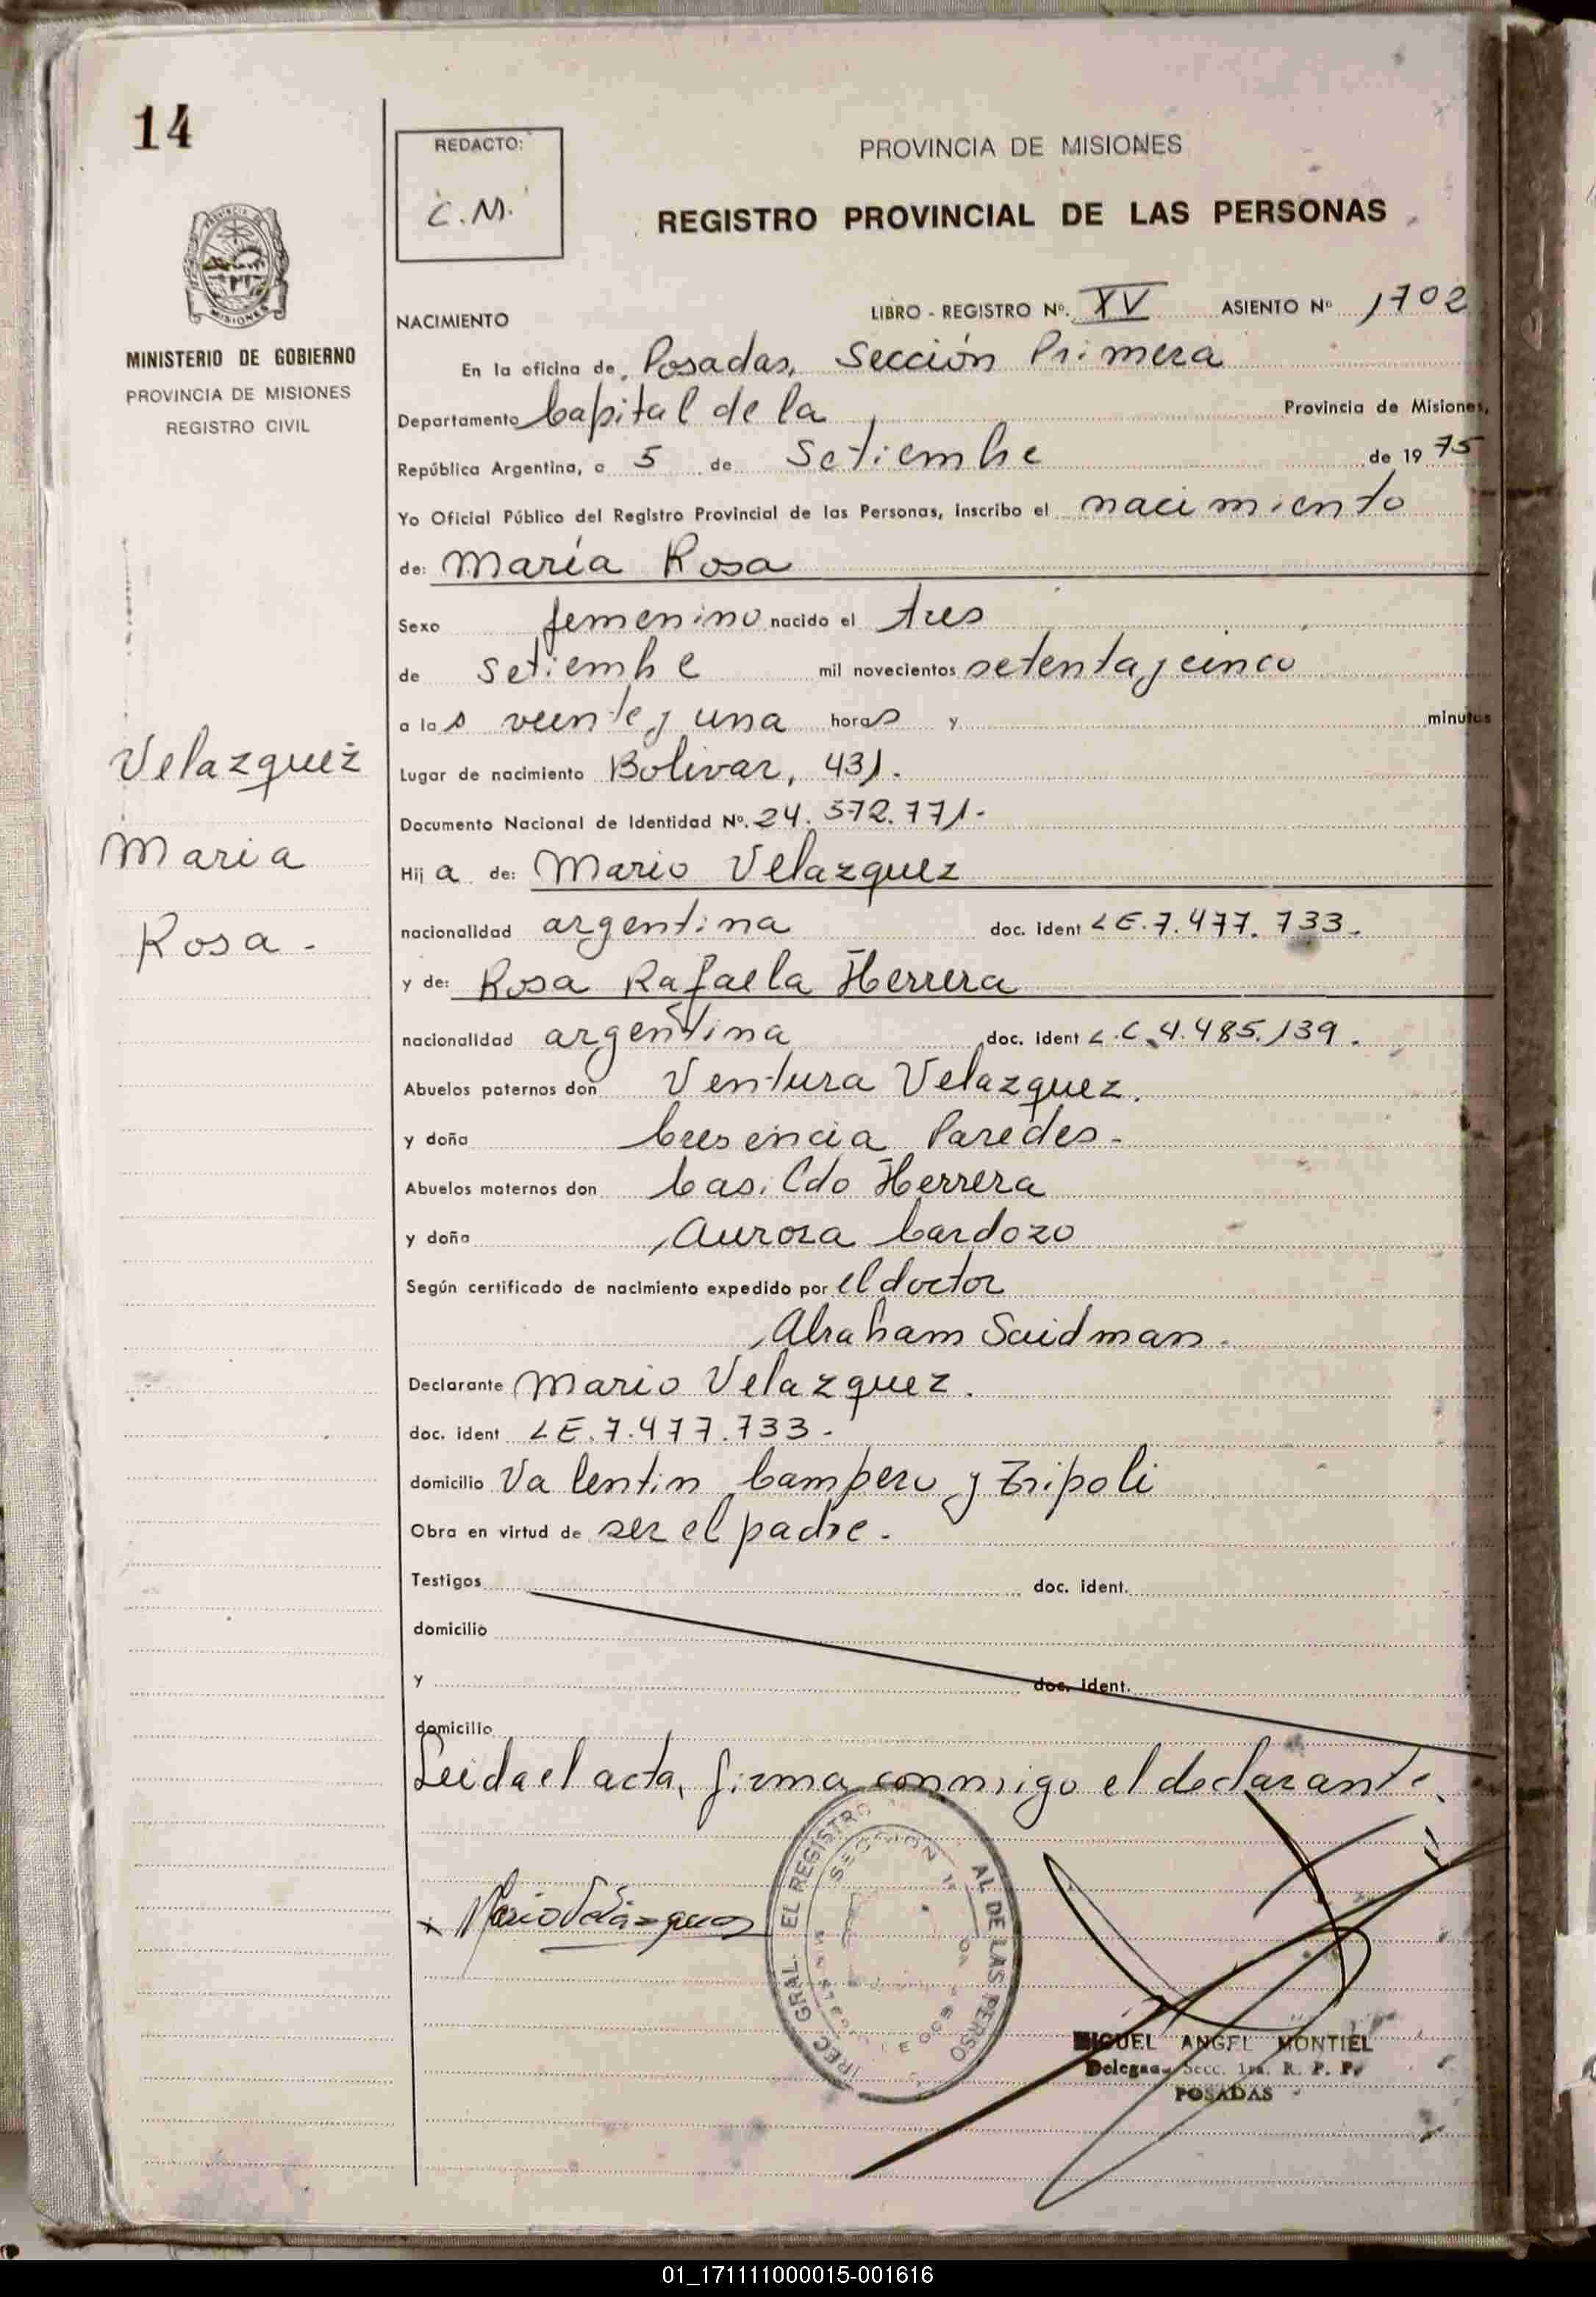 14
MINISTERIO DE GOBIERNO
PROVINCIA DE MISIONES
REGISTRO CIVIL
Velazquez
Maria
Rosa -
REDACTO:
C.M.
PROVINCIA DE MISIONES
REGISTRO PROVINCIAL DE LAS PERSONAS
NACIMIENTO LIBRO - REGISTRO Nº. XV ASIENTO Nº 1702
En la oficina de Posadas, Sección Primera
Departamento Capital de la Provincia de Misiones,
República Argentina, a 5 de Setiembre de 19 75
Yo Oficial Público del Registro Provincial de las Personas, inscribo el nacimiento
de: María Rosa
Sexo femenino nacido el tres
de Setiembre mil novecientos setenta y cinco
a las veinte y una horas y minutos
Lugar de nacimiento Bolivar, 431.
Documento Nacional de Identidad Nº. 24.572.771-
Hija de: Mario Velazquez
nacionalidad argentina doc. ident LE.7.477.733.
y de: Rosa Rafaela Herrera
nacionalidad argentina doc. ident L.C.4.485.139.
Abuelos paternos don Ventura Velazquez.
y doña Cresencia Paredes-
Abuelos maternos don Casildo Herrera
y doña Aurora Cardozo
Según certificado de nacimiento expedido por el doctor
Abraham Saidman-
Declarante Mario Velazquez.
doc. ident LE.7.477.733-
domicilio Valentin Campero y Tripoli
Obra en virtud de ser el padre-
Testigos doc. ident.
domicilio
y doc. ident.
domicilio
Leida el acta, firma conmigo el declarante.
x Mario Velázquez
GRAL. EL REGISTRO AL DE LAS PERSO
SECCION 1ª
MIGUEL ANGEL MONTIEL
Delegado Secc. 1ra. R. P. P.
POSADAS
01_171111000015-001616